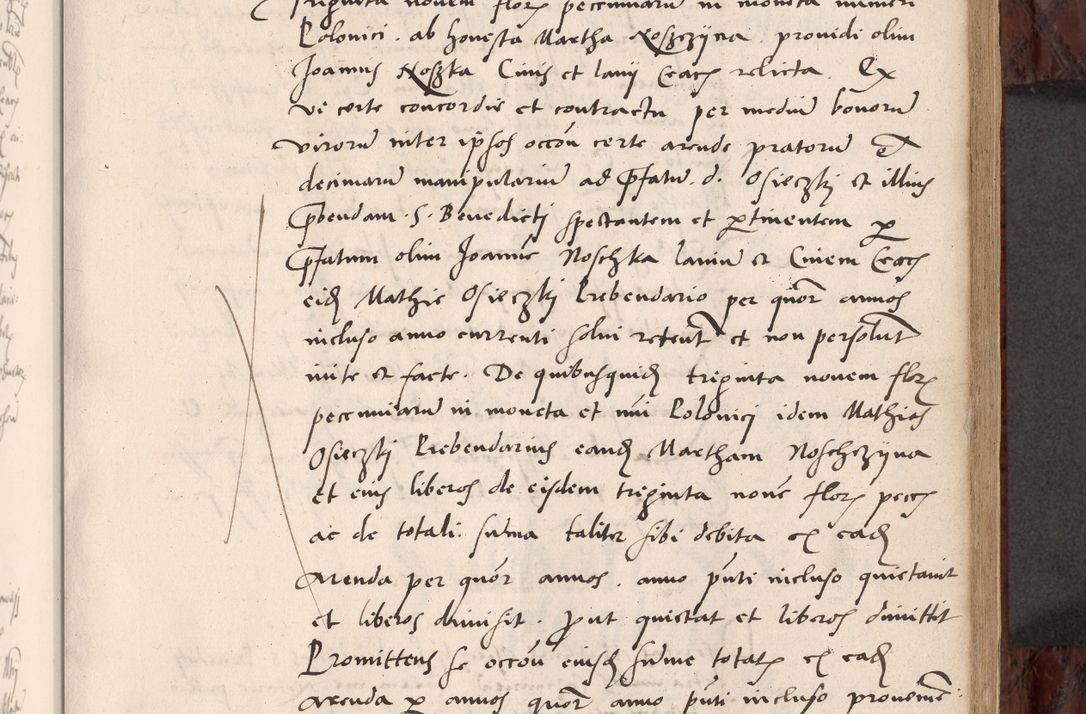 Triginta novem flor pecuniaru in moneta numeri
Polonici . ab honesta Martha Noszczÿna . providi olim
Joannis Noszka Civis et lanÿ Crac relicta . Ex
vi certe concordie et contractu per mediu bonoru
viroru inter ipsos occon certe arende pratoru et
decimaru manipulariu ad Pfatu . d . Osieczkÿ et illius
Pbendam . S . Benedicti spectantem et ptinentem p
Pfatum olim Joanne Noschka laniu et Civem Crac
eid Mathie Osieczkÿ Prebendario per quor annos
incluso anno currenti solvi retent et non persolut
inite et facte . De quibusquid triginta novem flor
pecuniaru in moneta et nui Polonici idem Mathias
Osieczkÿ Prebendarius eand Martham Noschczÿna
et eius liberos de eisdem triginta nove flor pecc
ac de totali . suma taliter sibi debita ex ead
Arenda per quor annos . anno pnti incluso quietavit
et liberos dimisit . Put quietat et liberos dimittit
Promittens se occon eiusd sume total ex ead
arenda p annos quor anno pnti incluso provenien